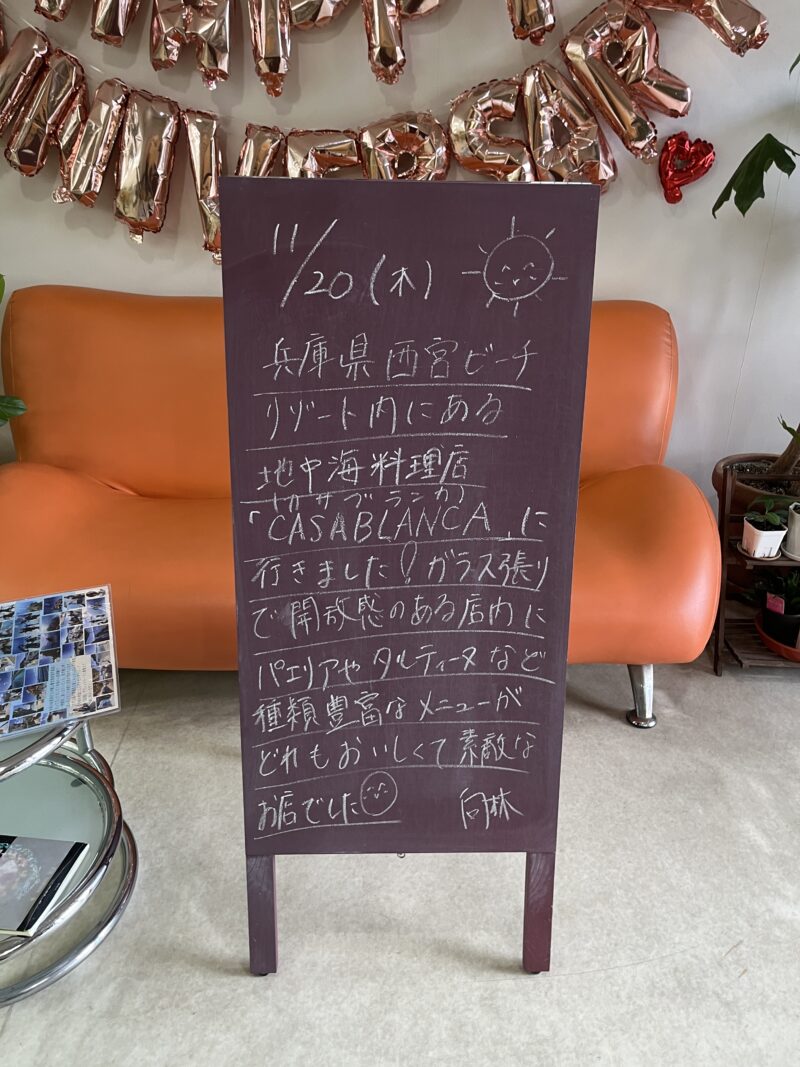 HAPPY
ANNIVERSARY
11/20(木)
兵庫県西宮ビーチ
リゾート内にある
地中海料理店
カサブランカ
「CASABLANCA」に
行きました!ガラス張り
で開放感のある店内に
パエリアやタルティーヌなど
種類豊富なメニューが
どれもおいしくて素敵な
お店でした
向林